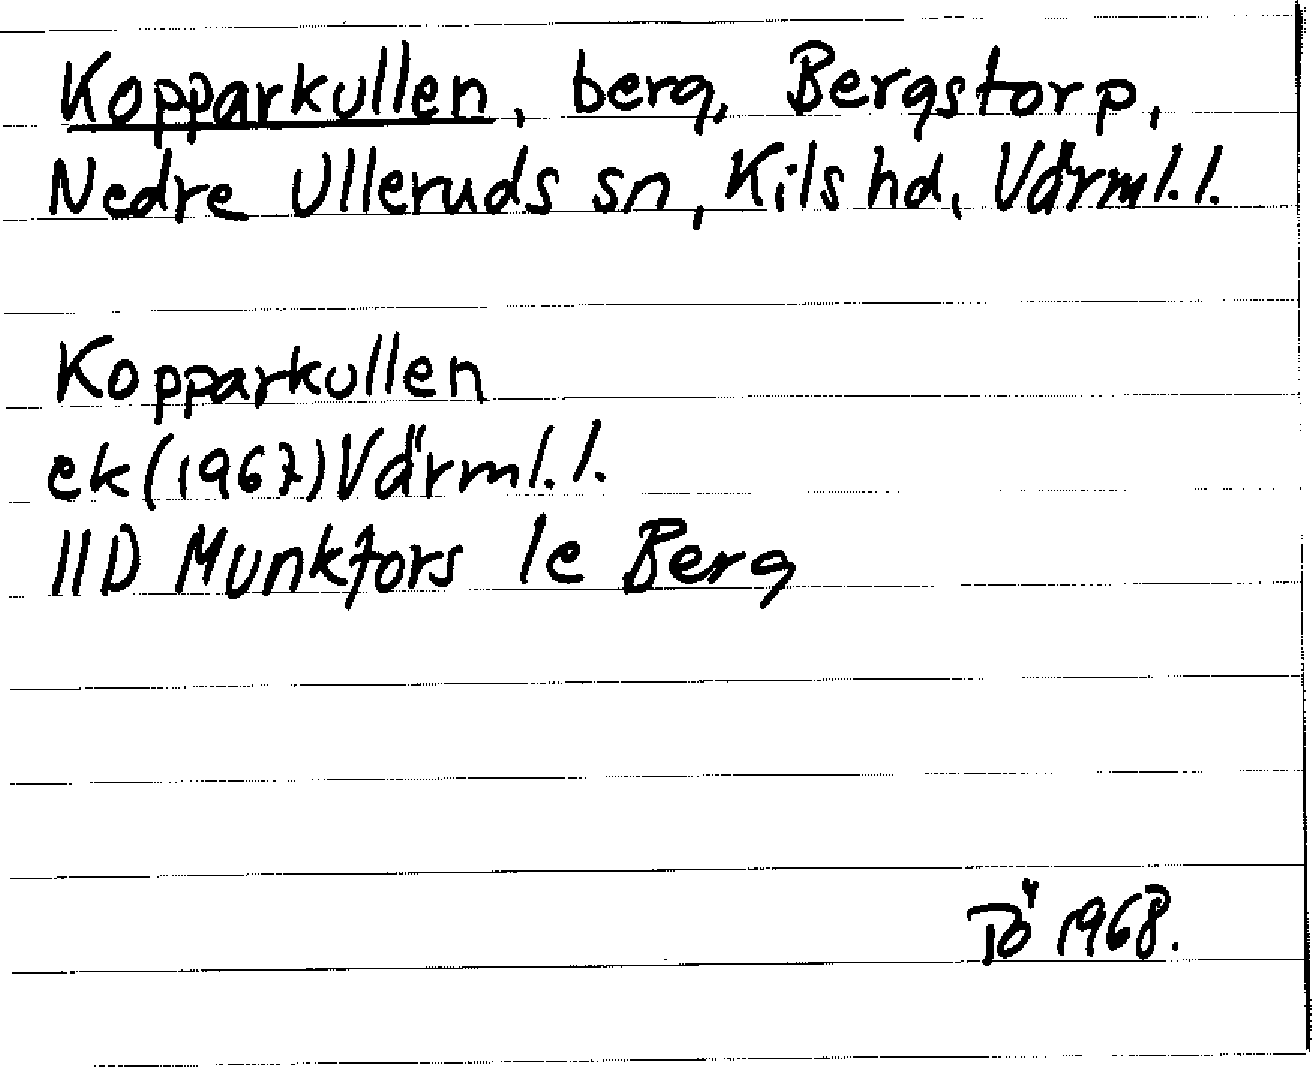 Kopparkullen, berg, Bergstorp,
Nedre Ulleruds sn, Kils hd, Värml. l.
Kopparkullen
ek (1967) Värml. l.
11D Munkfors 1e Berg
Tö 1968.